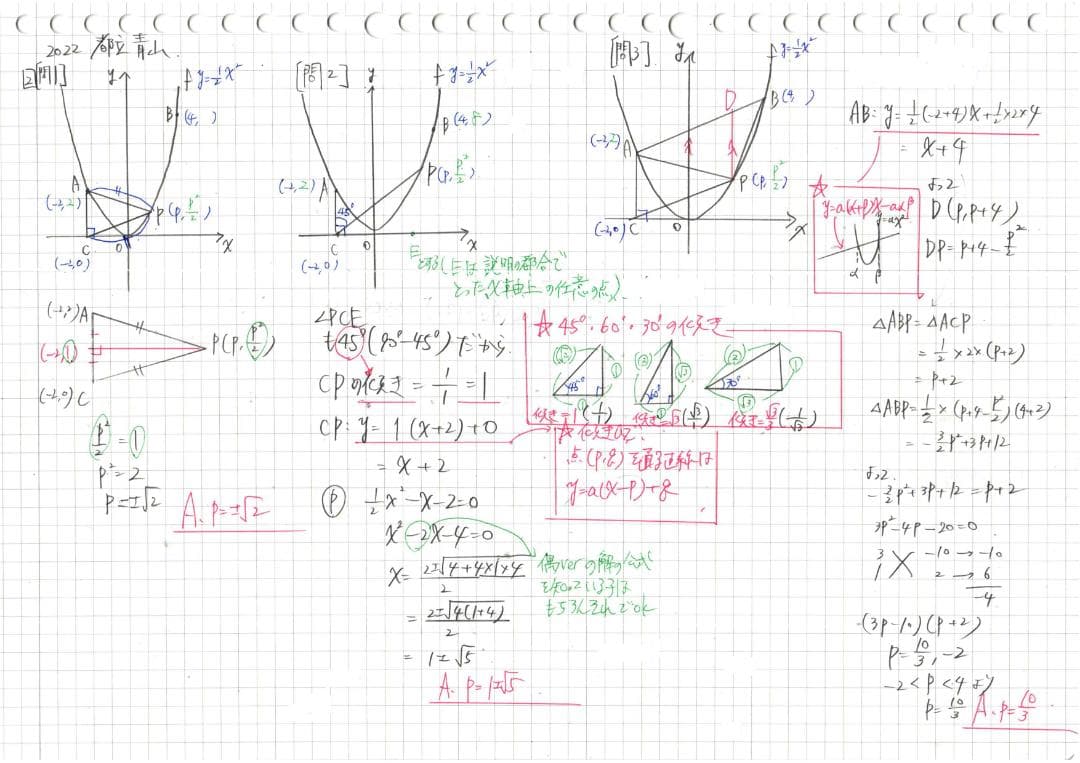 2022 都立青山
2 [問1]
y
f y=½x²
B(4, )
A
(-2,2)
P(p, p²/2)
C
O
x
(-2,0)
(-2,2)A
(-2,1)
P(p, p²/2)
(-2,0)C
p²/2 = 1
p²=2
p=±√2
A. p=±√2
[問2]
y
f y=½x²
B(4,8)
P(p, p²/2)
(-2,2)
A
45°
C
O
E
x
(-2,0)
とする(Eは説明の都合で
とったx軸上の任意の点)
∠PCE
も45°(90°-45°)だから
CPの傾き = 1/1 = 1
CP: y= 1(x+2)+0
= x+2
Ⓟ ½x²-x-2=0
x²-2x-4=0
x= 2±√4+4×1×4 / 2
= 2±√4(1+4) / 2
= 1±√5
A. p=1±√5
偶verの解の公式
もちろんそれでok
☆45°・60°・30°の傾き
√2 1 45° 1
2 √3 60° 1
2 1 30° √3
傾き=1(1/1)
傾き=√3(√3/1)
傾き=√3/3(1/√3)
点(p,q)を通る直線は
y=a(x-p)+q
[問3]
y
f y=½x²
D
B(4, )
(-2,2)
A
P(p, p²/2)
(-2,0)
C
O
x
AB: y=½(-2+4)x+½×2×4
= x+4
よって
D(p,p+4)
DP=p+4-p²/2
☆
y=a(α+β)x-aαβ
y=ax²
α β
△ABP=△ACP
=½×2×(p+2)
= p+2
△ABP=½×(p+4-p²/2)(4+2)
= -3/2p²+3p+12
よって
-3/2p²+3p+12=p+2
3p²-4p-20=0
3 -10 → -10
1 2 → 6
-4
(3p-10)(p+2)
p=10/3, -2
-2<p<4より
p=10/3
A. p=10/3